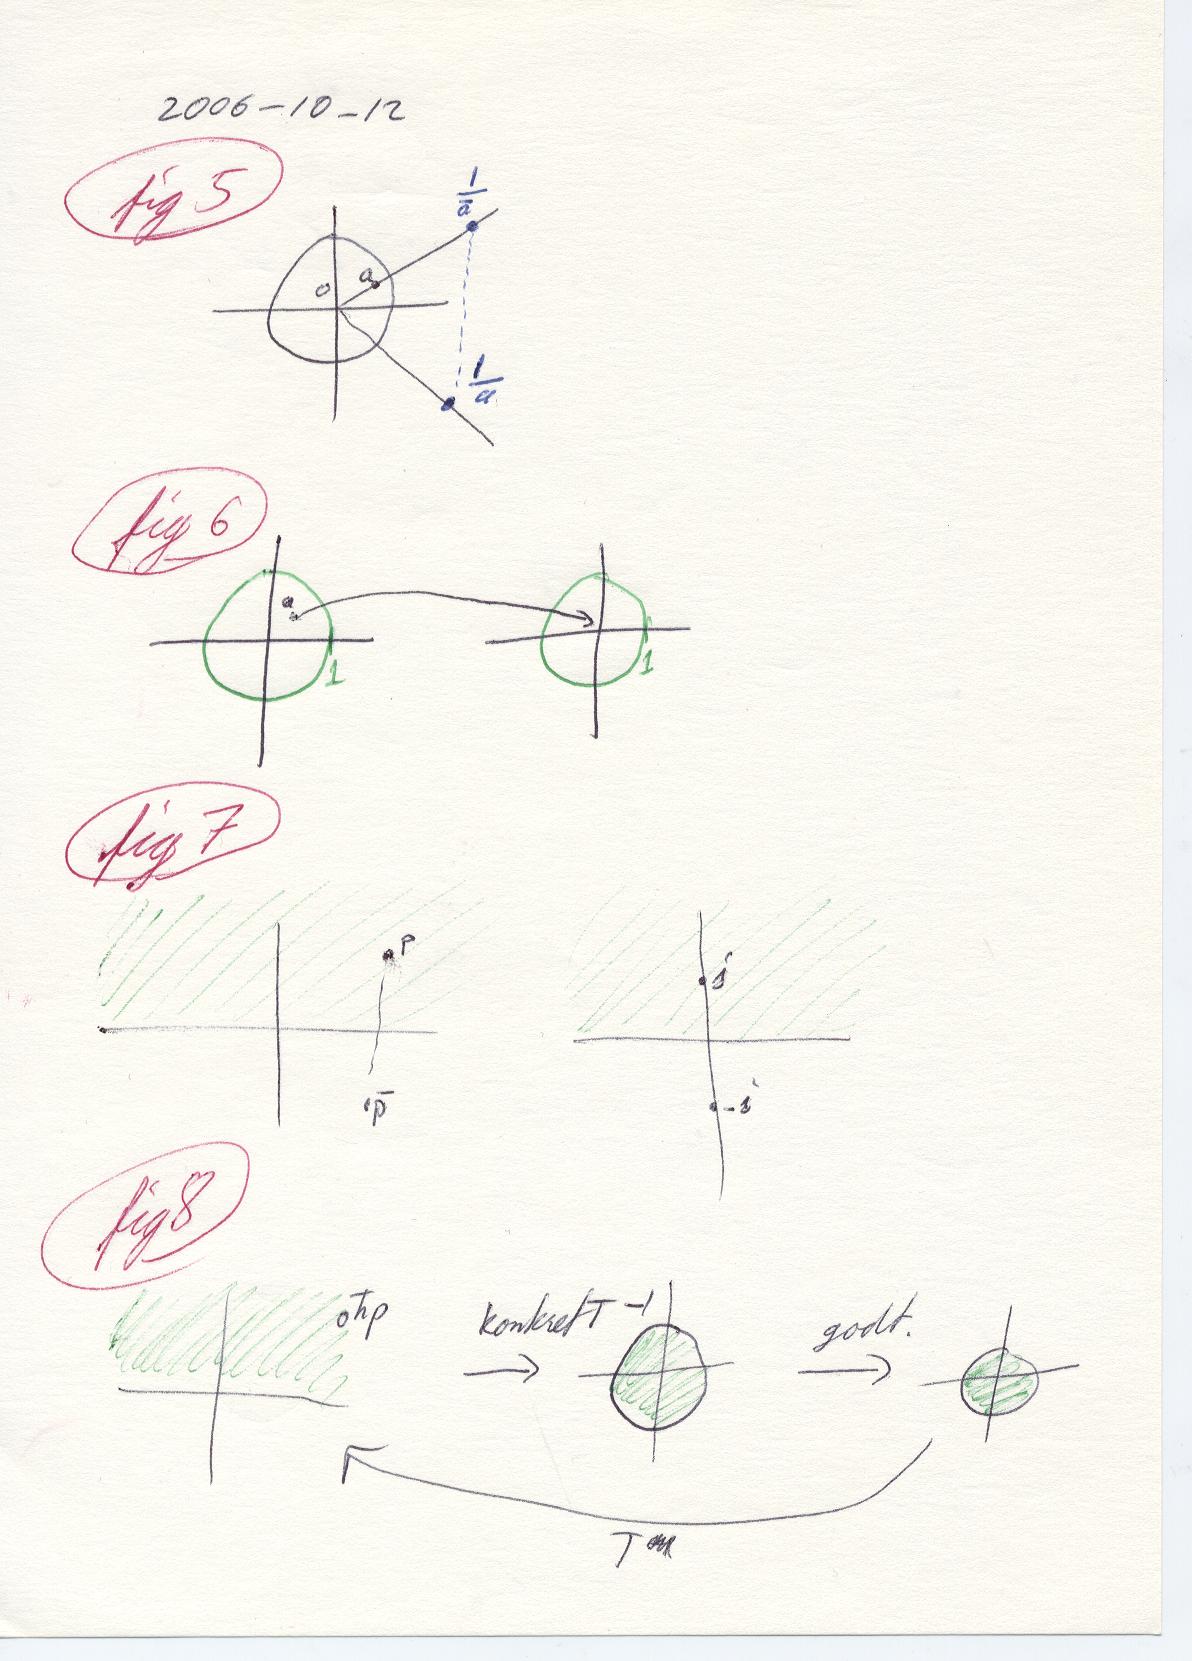 2006-10-12
fig 5
1/ā
a
0
1/a
fig 6
a
1
1
fig 7
p
i
p̄
-i
fig 8
öhp
konkret T⁻¹
godt.
T